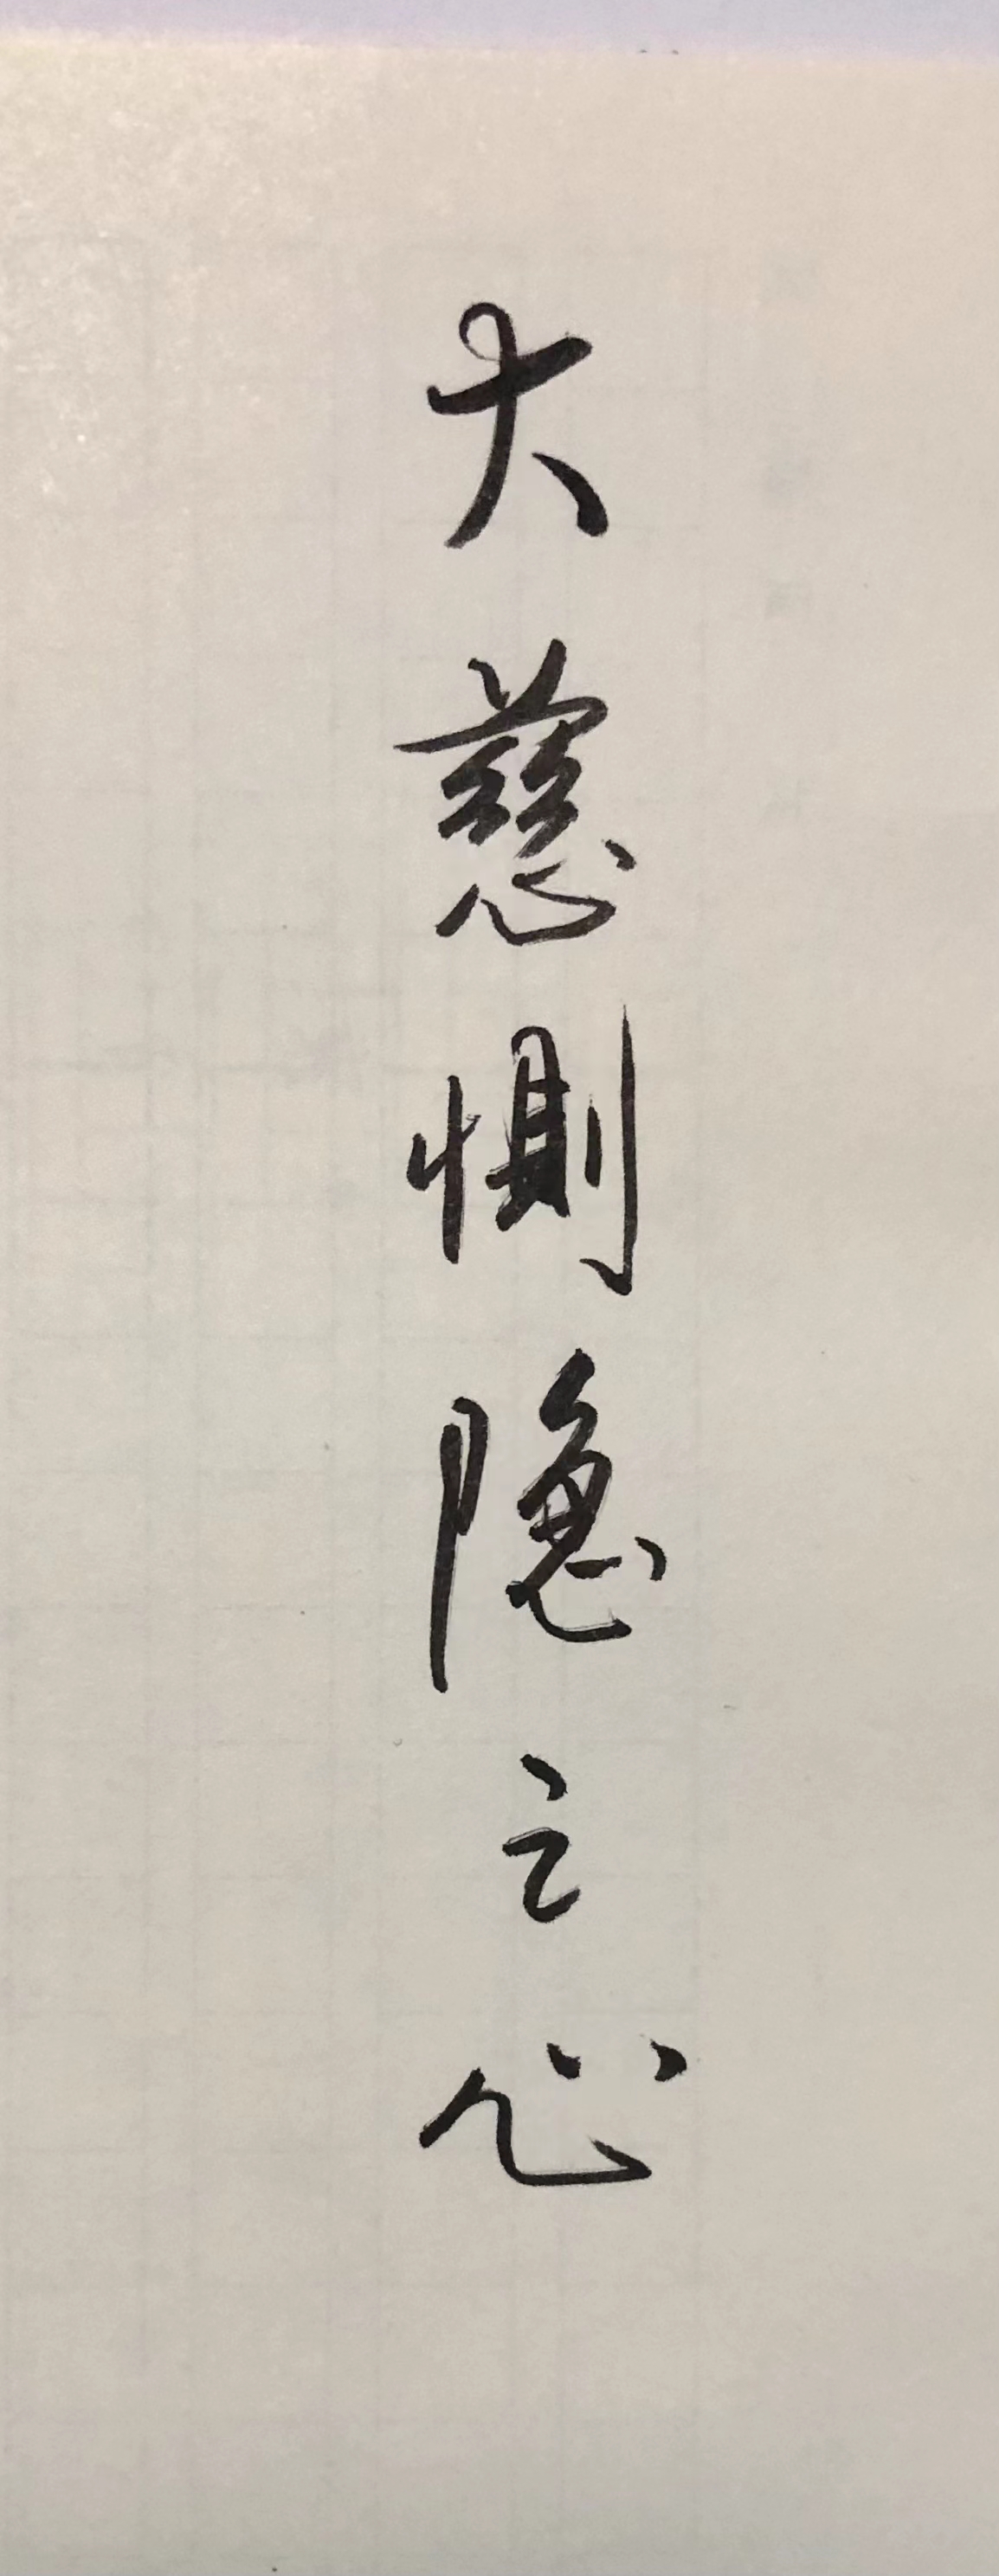 大慈惻隐之心